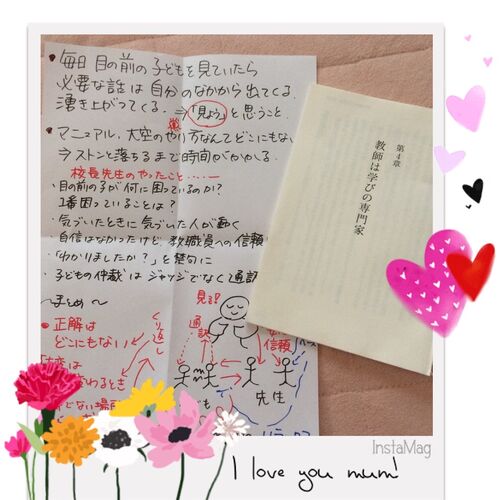 ・毎日 目の前の子どもを見ていたら
必要な話は自分のなかから出てくる。
湧き上がってくる。⇒「見よう」と思うこと。
・マニュアル、大空のやり方なんてどこにもない
⇒ストンと落ちるまで時間がかかる。
校長先生のやったこと・・・
・目の前の子が何に困っているのか?
1番困っていることは?
・気づいたときに気づいた人が動く
・自信はなかったけど教職員への信頼
・「わかりましたか?」と禁句に
・子どもの仲裁はジャッジでなく通訳
〜まとめ〜
・正解は
どこにもない
くり返し
見る!
通訳
信頼
先生
わるとき
ない場面
第4章
教師は学びの専門家
InstaMag
I love you mum!